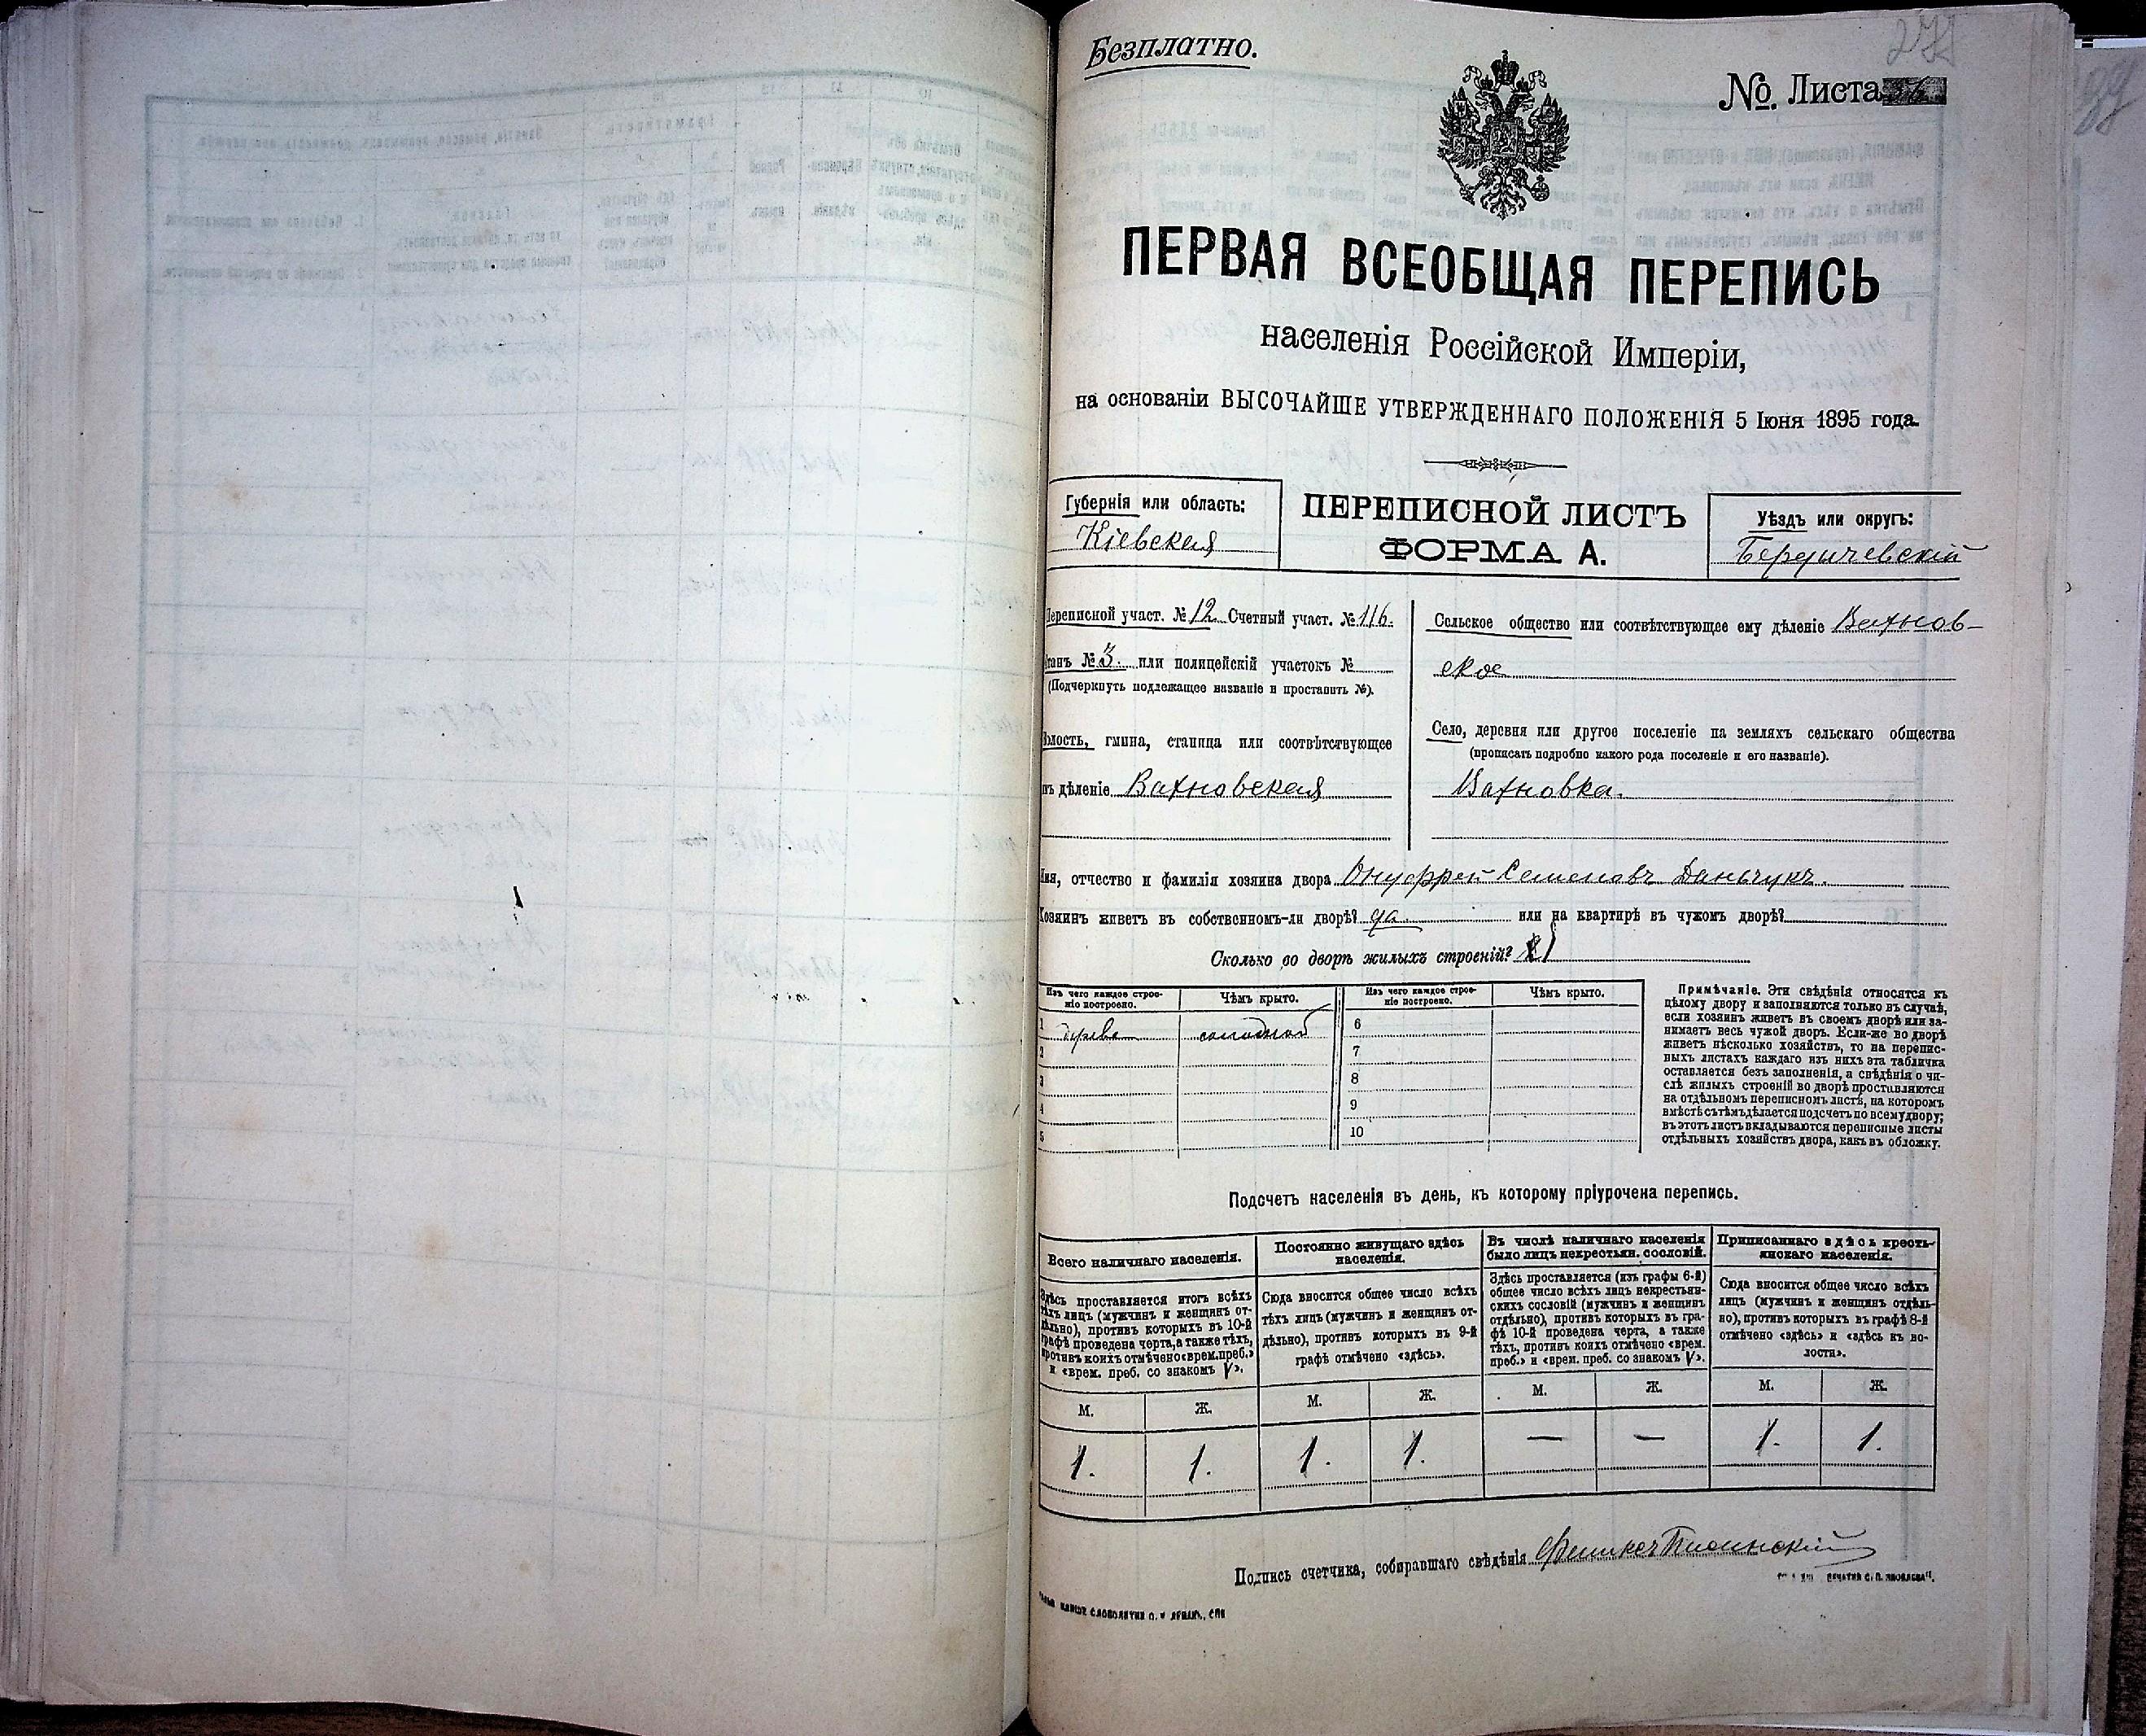 Безплатно.
№ Листа
ПЕРВАЯ ВСЕОБЩАЯ ПЕРЕПИСЬ
населенія Россійской Имперіи,
на основаніи ВЫСОЧАЙШЕ УТВЕРЖДЕННАГО ПОЛОЖЕНІЯ 5 Іюня 1895 года.
Губернія или область:
Кіевская
ПЕРЕПИСНОЙ ЛИСТЪ
ФОРМА А.
Уѣздъ или округъ:
Бердичевскій
Переписной участ. № 12. Счетный участ. № 116.
Станъ № 3. или полицейскій участокъ №
(Подчеркнуть подлежащее названіе и проставить №).
Волость, гмина, станица или соотвѣтствующее
имъ дѣленіе Вахновская
Сельское общество или соотвѣтствующее ему дѣленіе Вахнов-
ское
Село, деревня или другое поселеніе на земляхъ сельскаго общества
(прописать подробно какого рода поселеніе и его названіе).
Вахновка.
Имя, отчество и фамилія хозяина двора Онуфрей Семеновъ Даньчукъ.
Хозяинъ живетъ въ собственномъ-ли дворѣ? да. или на квартирѣ въ чужомъ дворѣ?
Сколько во дворѣ жилыхъ строеній? 1
Изъ чего каждое строе-
ніе построено.
Чѣмъ крыто.
Изъ чего каждое строе-
ніе построено.
Чѣмъ крыто.
1 дерева соломой 6
2 7
3 8
4 9
5 10
Примѣчаніе. Эти свѣдѣнія относятся къ
цѣлому двору и заполняются только въ случаѣ,
если хозяинъ живетъ въ своемъ дворѣ или за-
нимаетъ весь чужой дворъ. Если-же во дворѣ
живетъ нѣсколько хозяйствъ, то на перепис-
ныхъ листахъ каждаго изъ нихъ эта табличка
оставляется безъ заполненія, а свѣдѣнія о чи-
слѣ жилыхъ строеній во дворѣ проставляются
на отдѣльномъ переписномъ листѣ, на которомъ
вмѣстѣ съ тѣмъ дѣлается подсчетъ по всему двору;
въ этотъ листъ вкладываются переписные листы
отдѣльныхъ хозяйствъ двора, какъ въ обложку.
Подсчетъ населенія въ день, къ которому пріурочена перепись.
Всего наличнаго населенія.
Здѣсь проставляется итогъ всѣхъ
тѣхъ лицъ (мужчинъ и женщинъ от-
дѣльно), противъ которыхъ въ 10-й
графѣ проведена черта, а также тѣхъ,
противъ коихъ отмѣчено «врем. преб.»
и «врем. преб. со знакомъ V».
Постоянно живущаго здѣсь
населенія.
Сюда вносится общее число всѣхъ
тѣхъ лицъ (мужчинъ и женщинъ от-
дѣльно), противъ которыхъ въ 9-й
графѣ отмѣчено «здѣсь».
Въ числѣ наличнаго населенія
было лицъ некрестьян. сословій.
Здѣсь проставляется (изъ графы 6-й)
общее число всѣхъ лицъ некрестьян-
скихъ сословій (мужчинъ и женщинъ
отдѣльно), противъ которыхъ въ гра-
фѣ 10-й проведена черта, а также
тѣхъ, противъ коихъ отмѣчено «врем.
преб.» и «врем. преб. со знакомъ V».
Приписаннаго здѣсь кресть-
янскаго населенія.
Сюда вносится общее число всѣхъ
лицъ (мужчинъ и женщинъ отдѣль-
но), противъ которыхъ въ графѣ 8-й
отмѣчено «здѣсь» и «здѣсь къ во-
лости».
М. Ж. М. Ж. М. Ж. М. Ж.
1. 1. 1. 1. — — 1. 1.
Подпись счетчика, собиравшаго свѣдѣнія Феликсъ